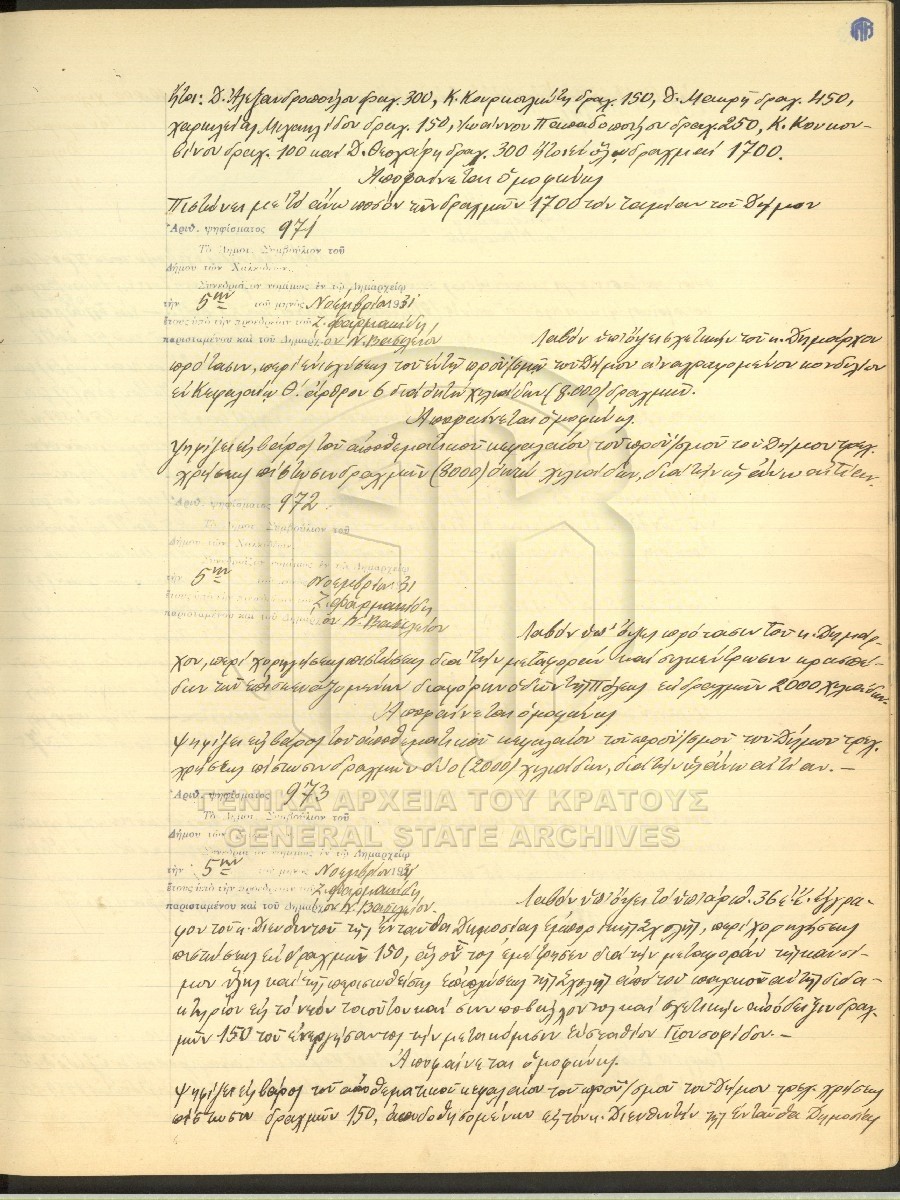 ἤτοι: Δ. Ἀλεξανδροπούλου δραχ. 300, Κ. δραχ. 150, Δ. Μακρῆ δραχ. 450,
δραχ. 150, Ἰωάννου Παπαδοπούλου δραχ. 250, Κ.
δραχ. 100 καὶ Δ. Θεοχάρη δραχ. 300 ἤτοι ἐν ὅλῳ δραχμαὶ 1700.
Ἀποφαίνεται ὁμοφώνως
Πιστώνει με τὸ ἄνω ποσὸν τῶν δραχμῶν 1700 τὸν ταμίαν τοῦ Δήμου
Ἀριθ. ψηφίσματος 971
Τὸ Δημοτ. Συμβούλιον τοῦ
Δήμου τῶν Χαλκιδέων.
Συνεδριάζον νομίμως ἐν τῷ Δημαρχείῳ
τὴν 5ην τοῦ μηνὸς Νοεμβρίου 1931
ἔτους ὑπὸ τὴν προεδρίαν τοῦ Ζ. Φαρμακίδη
παρισταμένου καὶ τοῦ Δημάρχου Ν. Βασιλείου Λαβὸν ὑπ' ὄψει σχετικὴν τοῦ κ. Δημάρχου
πρότασιν, περὶ ἐνισχύσεως τοῦ ἐν τῷ προϋ/σμῷ τοῦ Δήμου ἀναγραφομένου κονδυλίου
ἐν Κεφαλαίῳ Θ. ἄρθρον 6 διὰ ὀκτὼ χιλιάδων (8.000) δραχμῶν.
Ἀποφαίνεται ὁμοφώνως.
Ψηφίζει εἰς βάρος τοῦ ἀποθεματικοῦ κεφαλαίου τοῦ προϋ/σμοῦ τοῦ Δήμου τρεχ.
χρήσεως πίστωσιν δραχμῶν (8000) ὀκτὼ χιλιάδων, διὰ τὴν ὡς ἄνω αἰτίαν.
Ἀριθ. ψηφίσματος 972
Τὸ Δημοτ. Συμβούλιον τοῦ
Δήμου τῶν Χαλκιδέων
Συνεδριάζον νομίμως ἐν τῷ Δημαρχείῳ
τὴν 5ην τοῦ μηνὸς Νοεμβρίου 31
ἔτους ὑπὸ τὴν προεδρίαν τοῦ Ζ. Φαρμακίδη
παρισταμένου καὶ τοῦ Δημάρχου Ν. Βασιλείου
Λαβὸν ὑπ' ὄψει πρότασιν τοῦ κ. Δημάρ-
χου, περὶ χορηγήσεως πιστώσεως διὰ τὴν μεταφορὰν καὶ συγκέντρωσιν κρασπέ-
δων τῶν ἐπισκευαζομένων διαφόρων ὁδῶν τῆς Πόλεως ἐκ δραχμῶν 2000 χιλιάδων.
Ἀποφαίνεται ὁμοφώνως
Ψηφίζει εἰς βάρος τοῦ ἀποθεματικοῦ κεφαλαίου τοῦ προϋ/σμοῦ τοῦ Δήμου τρεχ.
χρήσεως πίστωσιν δραχμῶν δύο (2000) χιλιάδων, διὰ τὴν ὡς ἄνω αἰτίαν. —
Ἀριθ. ψηφίσματος 973
ΓΕΝΙΚΑ ΑΡΧΕΙΑ ΤΟΥ ΚΡΑΤΟΥΣ
Τὸ Δημοτ. Συμβούλιον τοῦ
Δήμου τῶν
GENERAL STATE ARCHIVES
Συνεδριάζον νομίμως ἐν τῷ Δημαρχείῳ
τὴν 5ην τοῦ μηνὸς Νοεμβρίου 1931
ἔτους ὑπὸ τὴν προεδρίαν τοῦ Ζ. Φαρμακίδη
παρισταμένου καὶ τοῦ Δημάρχου Ν. Βασιλείου. Λαβὸν ὑπ' ὄψει τὸ ὑπ' ἀριθ. 36 ἐ.ἔ. ἔγγρα-
φον τοῦ κ. Διευθυντοῦ τῆς ἐνταῦθα Δημοσίας Ἐμπορικῆς Σχολῆς, περὶ χορηγήσεως
πιστώσεως ἐκ δραχμῶν 150, διὰ τὴν μεταφορὰν τῆς καυσί-
μου ὕλης καὶ τῆς ἐπιπλώσεως τῆς Σχολῆς ἀπὸ τοῦ παλαιοῦ αὐτῆς διδα-
κτηρίου εἰς τὸ νέον τοιοῦτον καὶ συνυποβάλλοντος καὶ σχετικὴν ἀπόδειξιν δραχ-
μῶν 150 τοῦ ἐνεργήσαντος τὴν μετακόμισιν Εὐσταθίου Γιουσοφίδου. —
Ἀποφαίνεται ὁμοφώνως.
Ψηφίζει εἰς βάρος τοῦ ἀποθεματικοῦ κεφαλαίου τοῦ προϋ/σμοῦ τοῦ Δήμου τρεχ. χρήσεως
πίστωσιν δραχμῶν 150, ἀποδοθησομένων εἰς τὸν κ. Διευθυντὴν τῆς ἐνταῦθα Δημοσίας